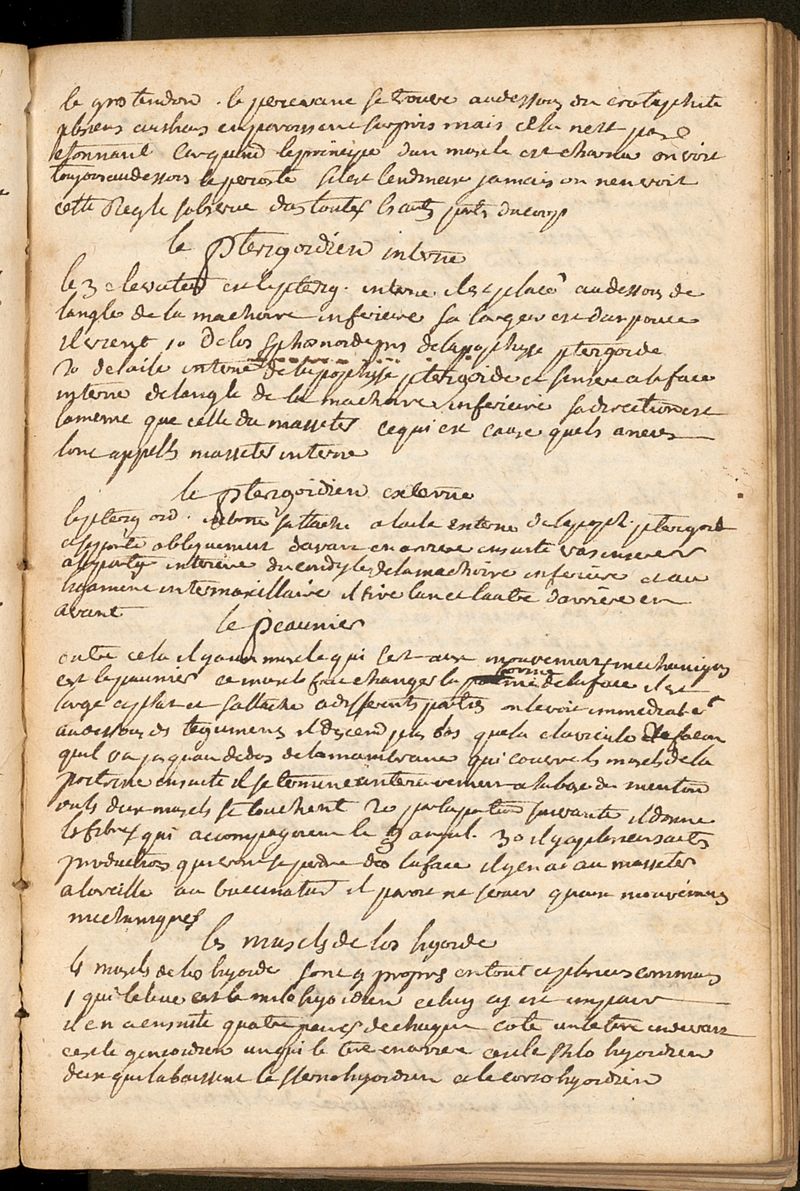 le gros tendon. le pericrane se trouve audessous du crotaphite
plusieurs auteurs en paroissent surpris mais cela nest pas
etonnant lorquand le principe dun muscle est charnu on voit
toujours audessous le perioste sil est tendineux jamais on nen voit
cette Regle sobserve das toutes les auts parts du corps
le pterigoidien interne
le 3 elevateur est le pterig. interne il est placé audessous de
langle de la machoire inferieure sa largeur est dun pouce
il vient 1o de los sphenoide pris de lapophyse pterigoide
2o de laile interne de lapophyse pterigoide et sinsere a la face
interne de langle de la machoire inferieure sa direction est
la meme que celle du masseter ce qui est cause quels anciens
lont appellé masseter interne
le pterigoidien externe
le pterigoid. externe sattache a laile externe de lapoph. pterigoid
et se porte obliquement davant en arriere ensuite va sinserer
a la partie interieure du condyle de la machoire inferieure et au
ligament intermaxillaire il tire lun et lautre darriere en
avant
le peaunier
outre cela il y a un muscle qui sert aux mouvements mechaniques
cest le peaunier ce muscle fait changer la forme de la face il est
large applati et sattache a differents parties on le voit immediatet
audessous des teguments il descend plus bas que la clavicule
quil va jusquau dedos de la membrane qui couvre les muscles de la
poitrine ensuite il se termine anterieurement a la base du menton
ou ls deux muscls se touchent 2o par la partie suivante il donne
ls fibres qui accompagnent le 3 angul. 3o il y a plusieurs auts
productions qui vont se perdre das la face il y en a au masseter
a loreille au buccinateur il paroit ne servir quaux mouvemens
mechaniques
les muscls de los hyoide
4 muscls de los hyoide sont 9 propres en tout et plusieurs communs
1 qui leleve cest le milo hyoidien celuy cy est impair
il en a ensuite quatre paires de chaque coté un le tire en devant
cest le genioidien un qui le tire en arriere cest le stilo hyoidien
deux qui labaissent le sterno hyoidien et le coraco hyoidien